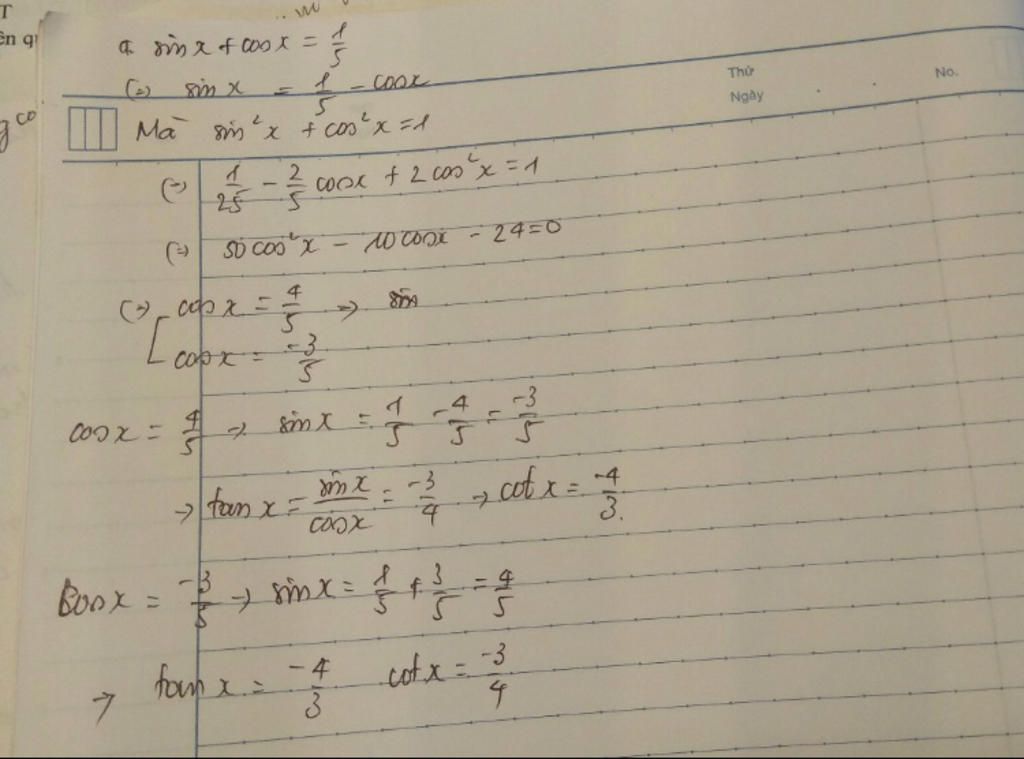 T
ên qu
g co
a. sin x + cos x = 1/5
(=) sin x = 1/5 - cos x
Thứ
No.
Ngày
Mà sin²x + cos²x = 1
(=) 1/25 - 2/5 cos x + 2 cos²x = 1
(=) 50 cos²x - 10 cos x - 24 = 0
(=) [ cos x = 4/5 → sin
cos x = -3/5
cos x = 4/5 → sin x = 1/5 - 4/5 = -3/5
→ tan x = sin x/cos x = -3/4 → cot x = -4/3.
Cos x = -3/5 → sin x = 1/5 + 3/5 = 4/5
→ tan x = -4/3 cot x = -3/4